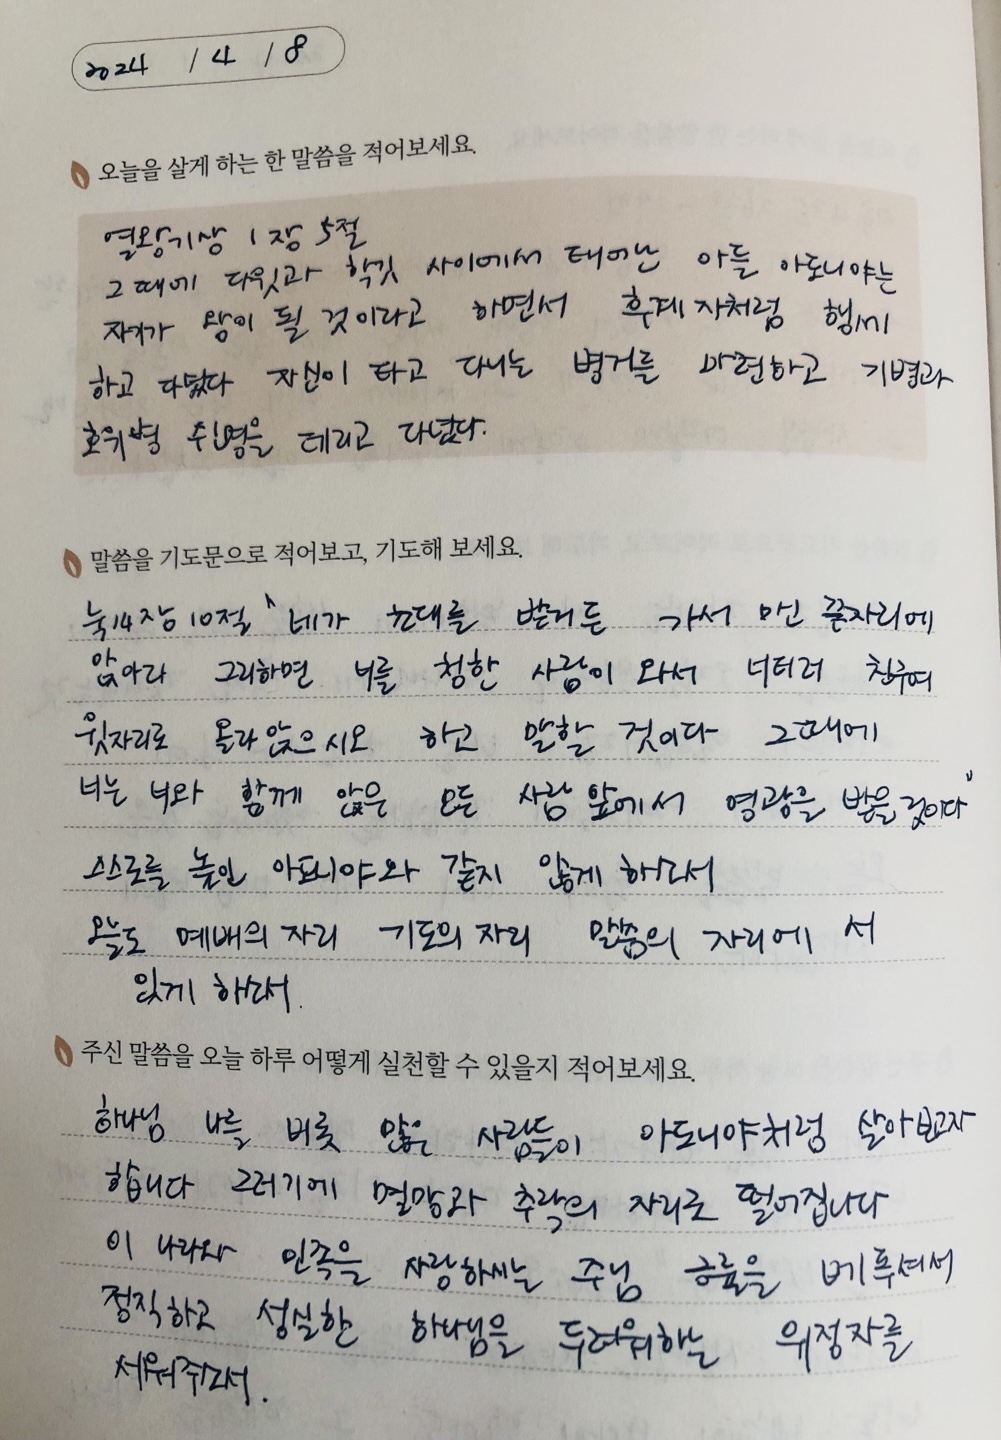 2024 / 4 / 8
오늘을 살게 하는 한 말씀을 적어보세요.
열왕기상 1장 5절
그때에 다윗과 학깃 사이에서 태어난 아들 아도니야는
자기가 왕이 될 것이라고 하면서 후계자처럼 행세
하고 다녔다 자신이 타고 다니는 병거를 마련하고 기병과
호위병 쉰명을 데리고 다녔다.
말씀을 기도문으로 적어보고, 기도해 보세요.
눅14장 10절 "네가 초대를 받거든 가서 맨 끝자리에
앉아라 그리하면 너를 청한 사람이 와서 너더러 친구여
윗자리로 올라 앉으시오 하고 말할 것이다 그때에
너는 너와 함께 앉은 모든 사람 앞에서 영광을 받을 것이다"
스스로를 높인 아도니야와 같지 않게 하소서
오늘도 예배의 자리 기도의 자리 말씀의 자리에 서
있게 하소서.
주신 말씀을 오늘 하루 어떻게 실천할 수 있을지 적어보세요.
하나님 나를 비롯 많은 사람들이 아도니야처럼 살아보고자
합니다 그러기에 멸망과 추락의 자리로 떨어집니다
이 나라와 민족을 사랑하시는 주님 긍휼을 베푸셔서
정직하고 성실한 하나님을 두려워하는 위정자를
세워주소서.